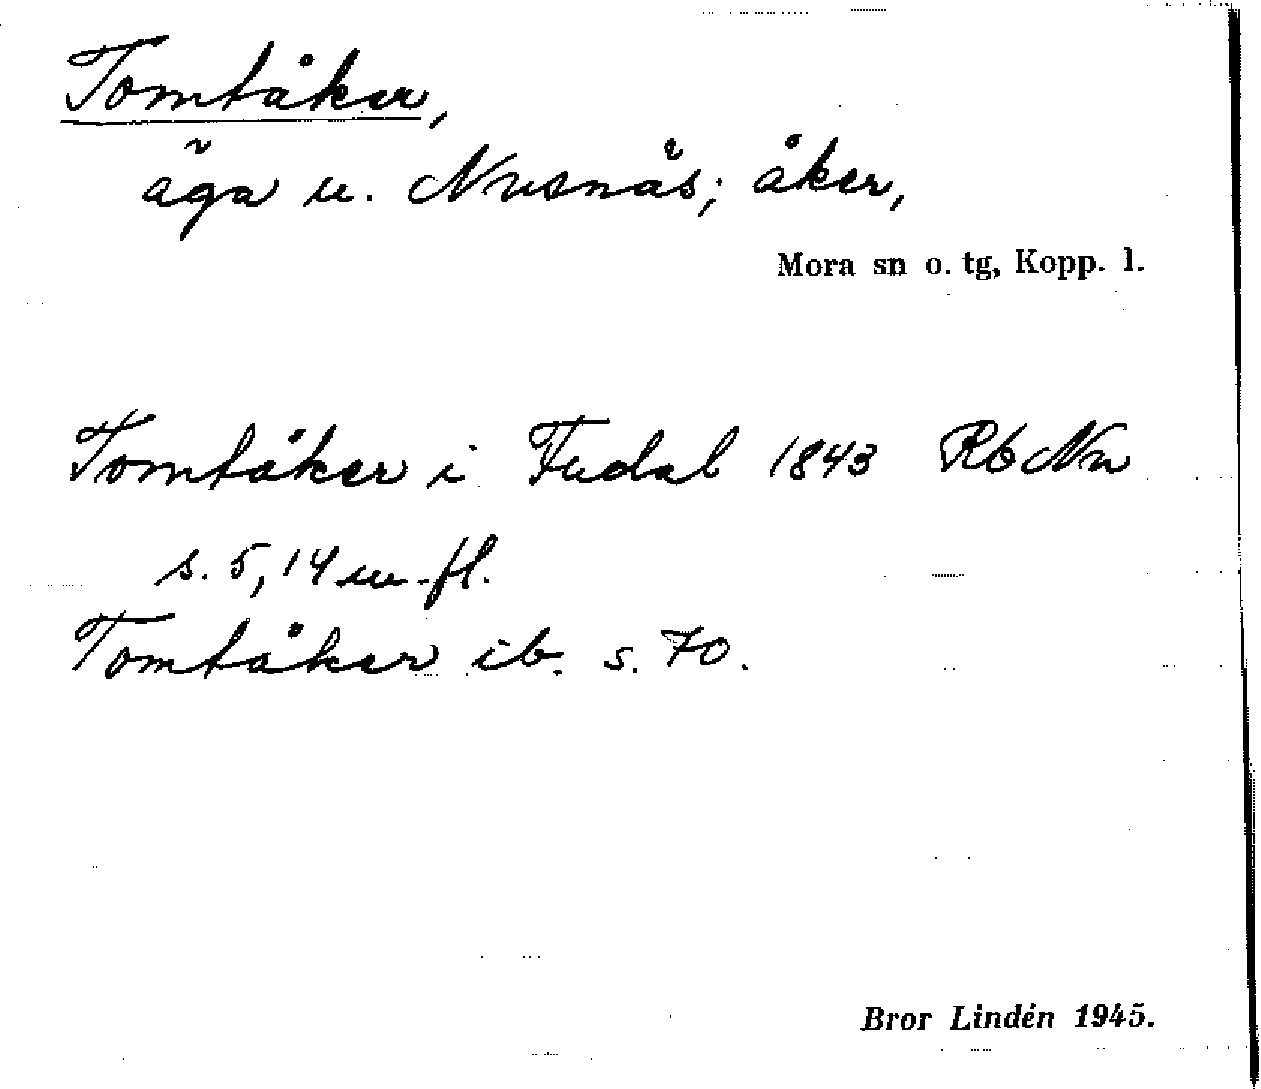 Tomtåker,
äga u. Nusnäs; åker,
Mora sn o. tg, Kopp. l.
Tomtåker i Fudal 1843 Rb Nn
s. 5, 14 m. fl.
Tomtåker ib. s. 70.
Bror Lindén 1945.